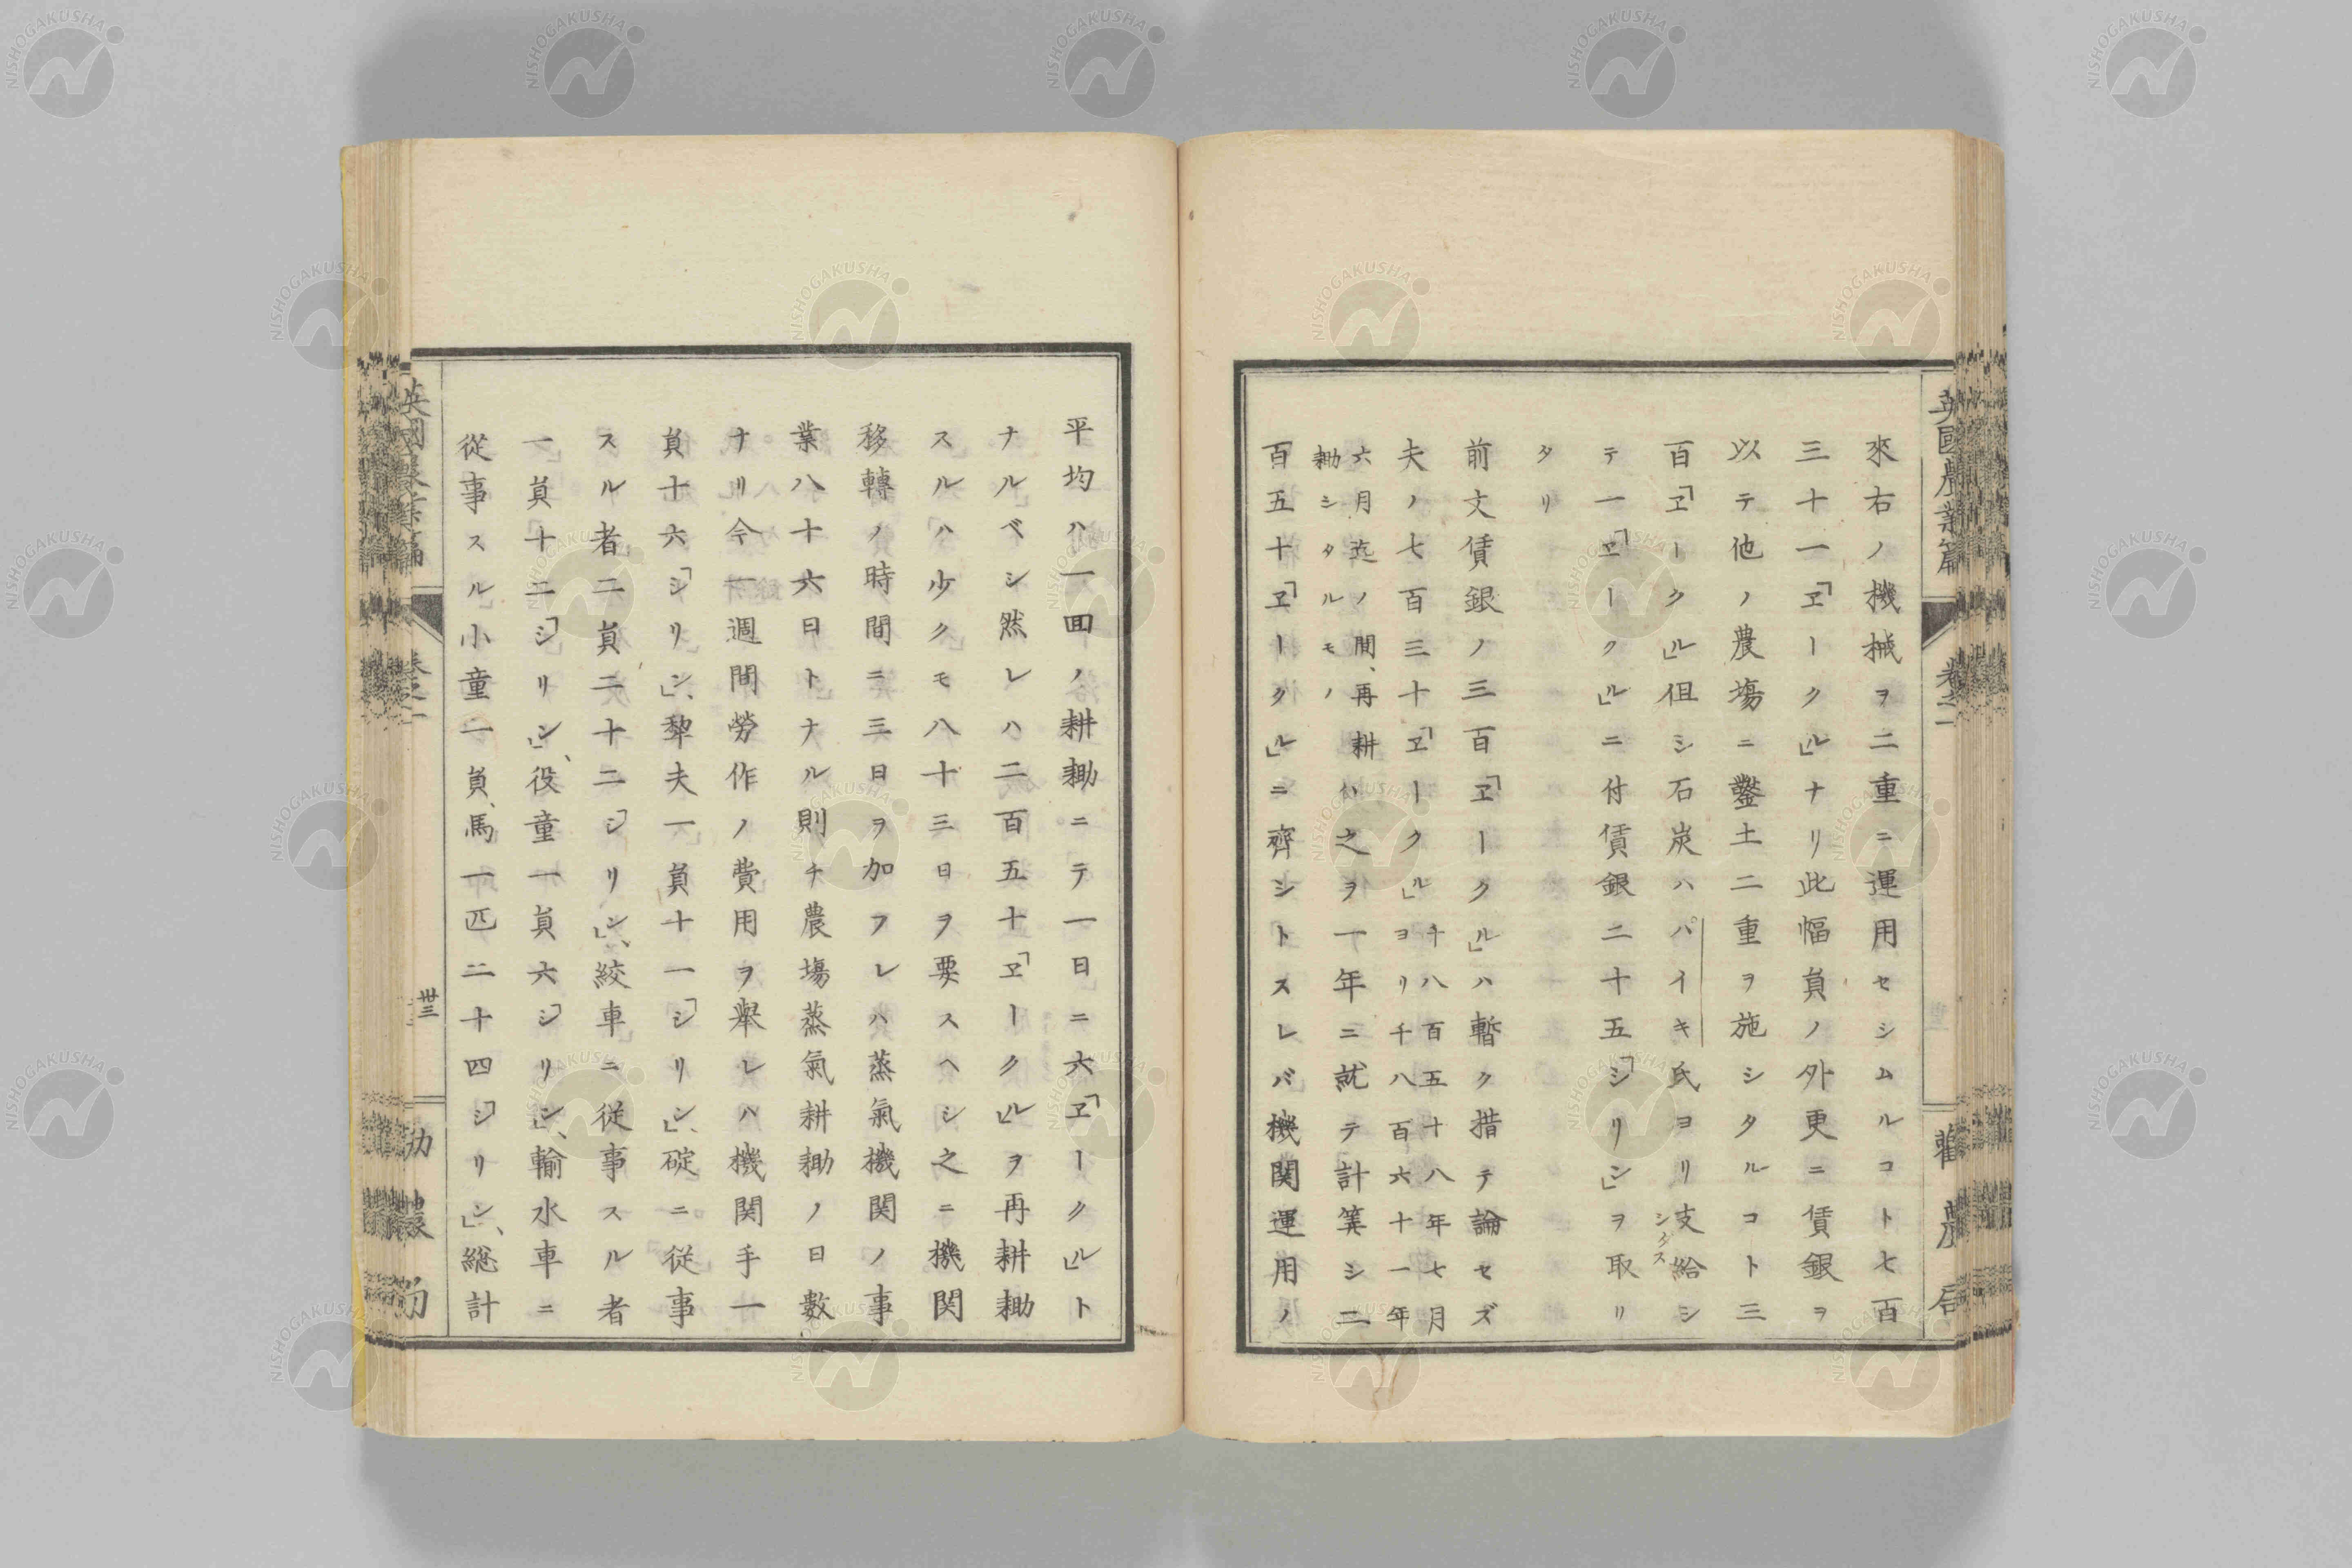 來右ノ機械ヲ二重ニ運用セシムルコト七百
三十一「ヱークル」ナリ此幅員ノ外更ニ賃銀ヲ
以テ他ノ農塲ニ鑿土二重ヲ施シタルコト三
百「ヱークル」但シ石炭ハパイキ氏ヨリ支給シ
テ一「ヱークル」ニ付賃銀二十五「シリン」ヲ取リ
タリ
前文賃銀ノ三百「ヱークル」ハ暫ク措テ論セズ
夫ノ七百三十「ヱークル」
千八百五十八年七月
ヨリ千八百六十一年
六月迄ノ間、再耕
耡シタルモノ
ハ之ヲ一年ニ就テ計筭シ二
百五十「ヱークル」ニ齊シトスレバ機関運用ノ
平均ハ一囬ノ耕耡ニテ一日ニ六「ヱークル」ト
ナルベシ然レハ二百五十「ヱークル」ヲ再耕耡
スルハ少クモ八十三日ヲ要スヘシ之ニ機関
移轉ノ時間ニ三日ヲ加フレハ蒸氣機関ノ事
業八十六日トナル則チ農塲蒸氣耕耡ノ日數
ナリ今一週間勞作ノ費用ヲ舉レハ機関手一
員十六「シリン」、犂夫一員十一「シリン」、碇ニ従事
スル者二員二十二「シリン」、絞車ニ従事スル者
一員十二「シリン」、役童一員六「シリン」、輸水車ニ
従事スル小童一員、馬一匹二十四「シリン」、総計
英國農業篇
卷之一
卅三
勸農局
NISHOGAKUSHA